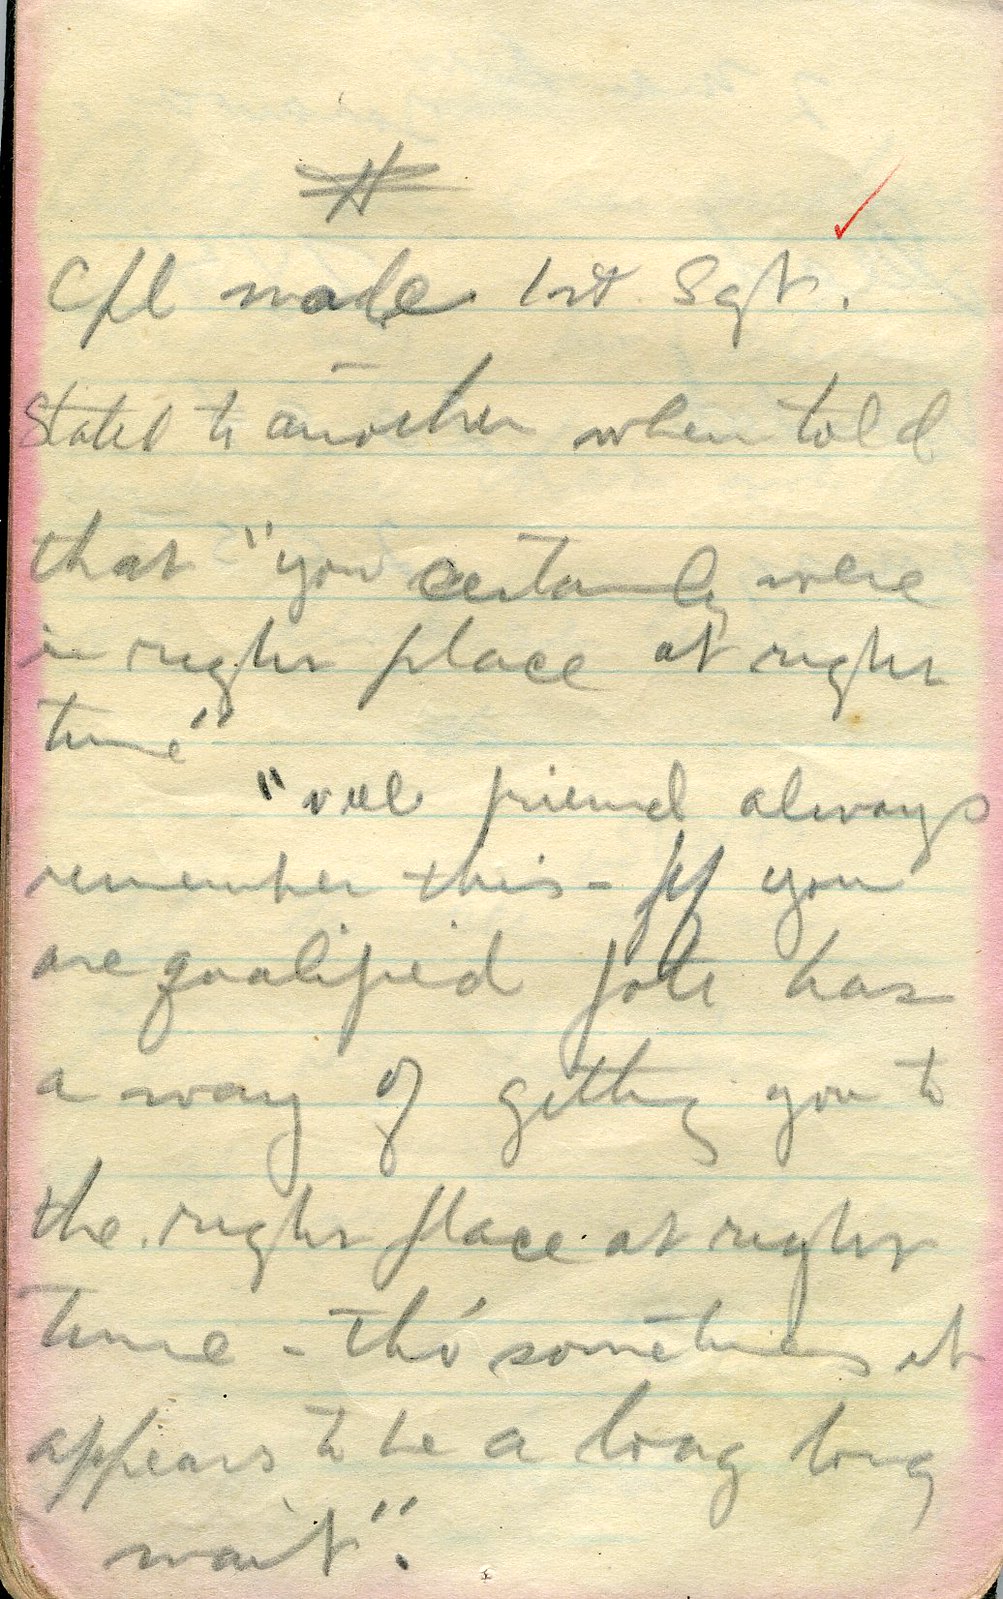 #
Cpl made 1st Sgt.
Stated to another when told
that "you certainly were
in right place at right
time"
"well friend always
remember this - If you
are qualified fate has
a way of getting you to
the right place at right
time - tho' sometimes it
appears to be a long long
wait".